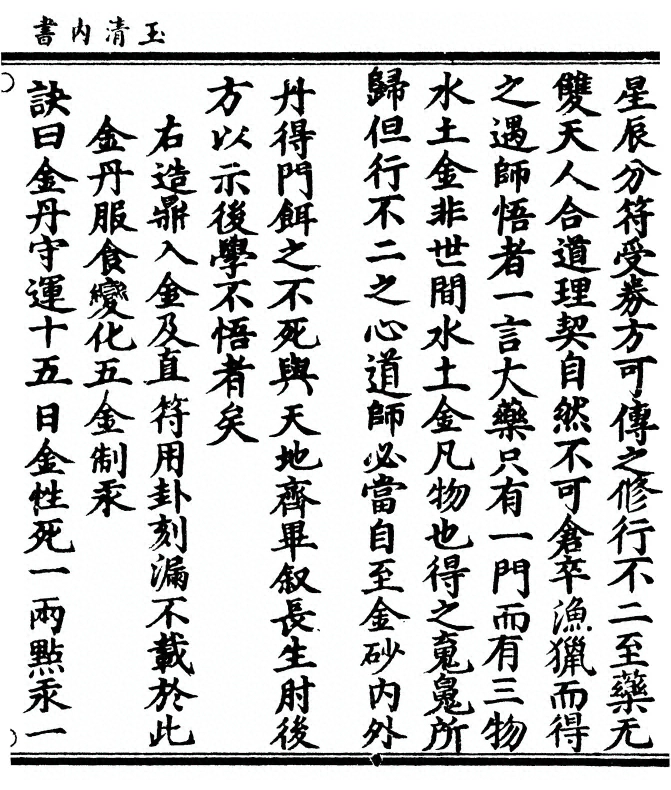 玉清内書
星辰分符受券方可傳之修行不二至藥无
雙天人合道理契自然不可倉卒漁獵而得
之遇師悟者一言大藥只有一門而有三物
水土金非世間水土金凡物也得之嵬嵬所
歸但行不二之心道師必當自至金砂内外
丹得門餌之不死與天地齊畢叙長生肘後
方以示後學不悟者矣
右造鼎入金及直符用卦刻漏不載於此
金丹服食變化五金制汞
訣曰金丹守運十五日金性死一兩點汞一